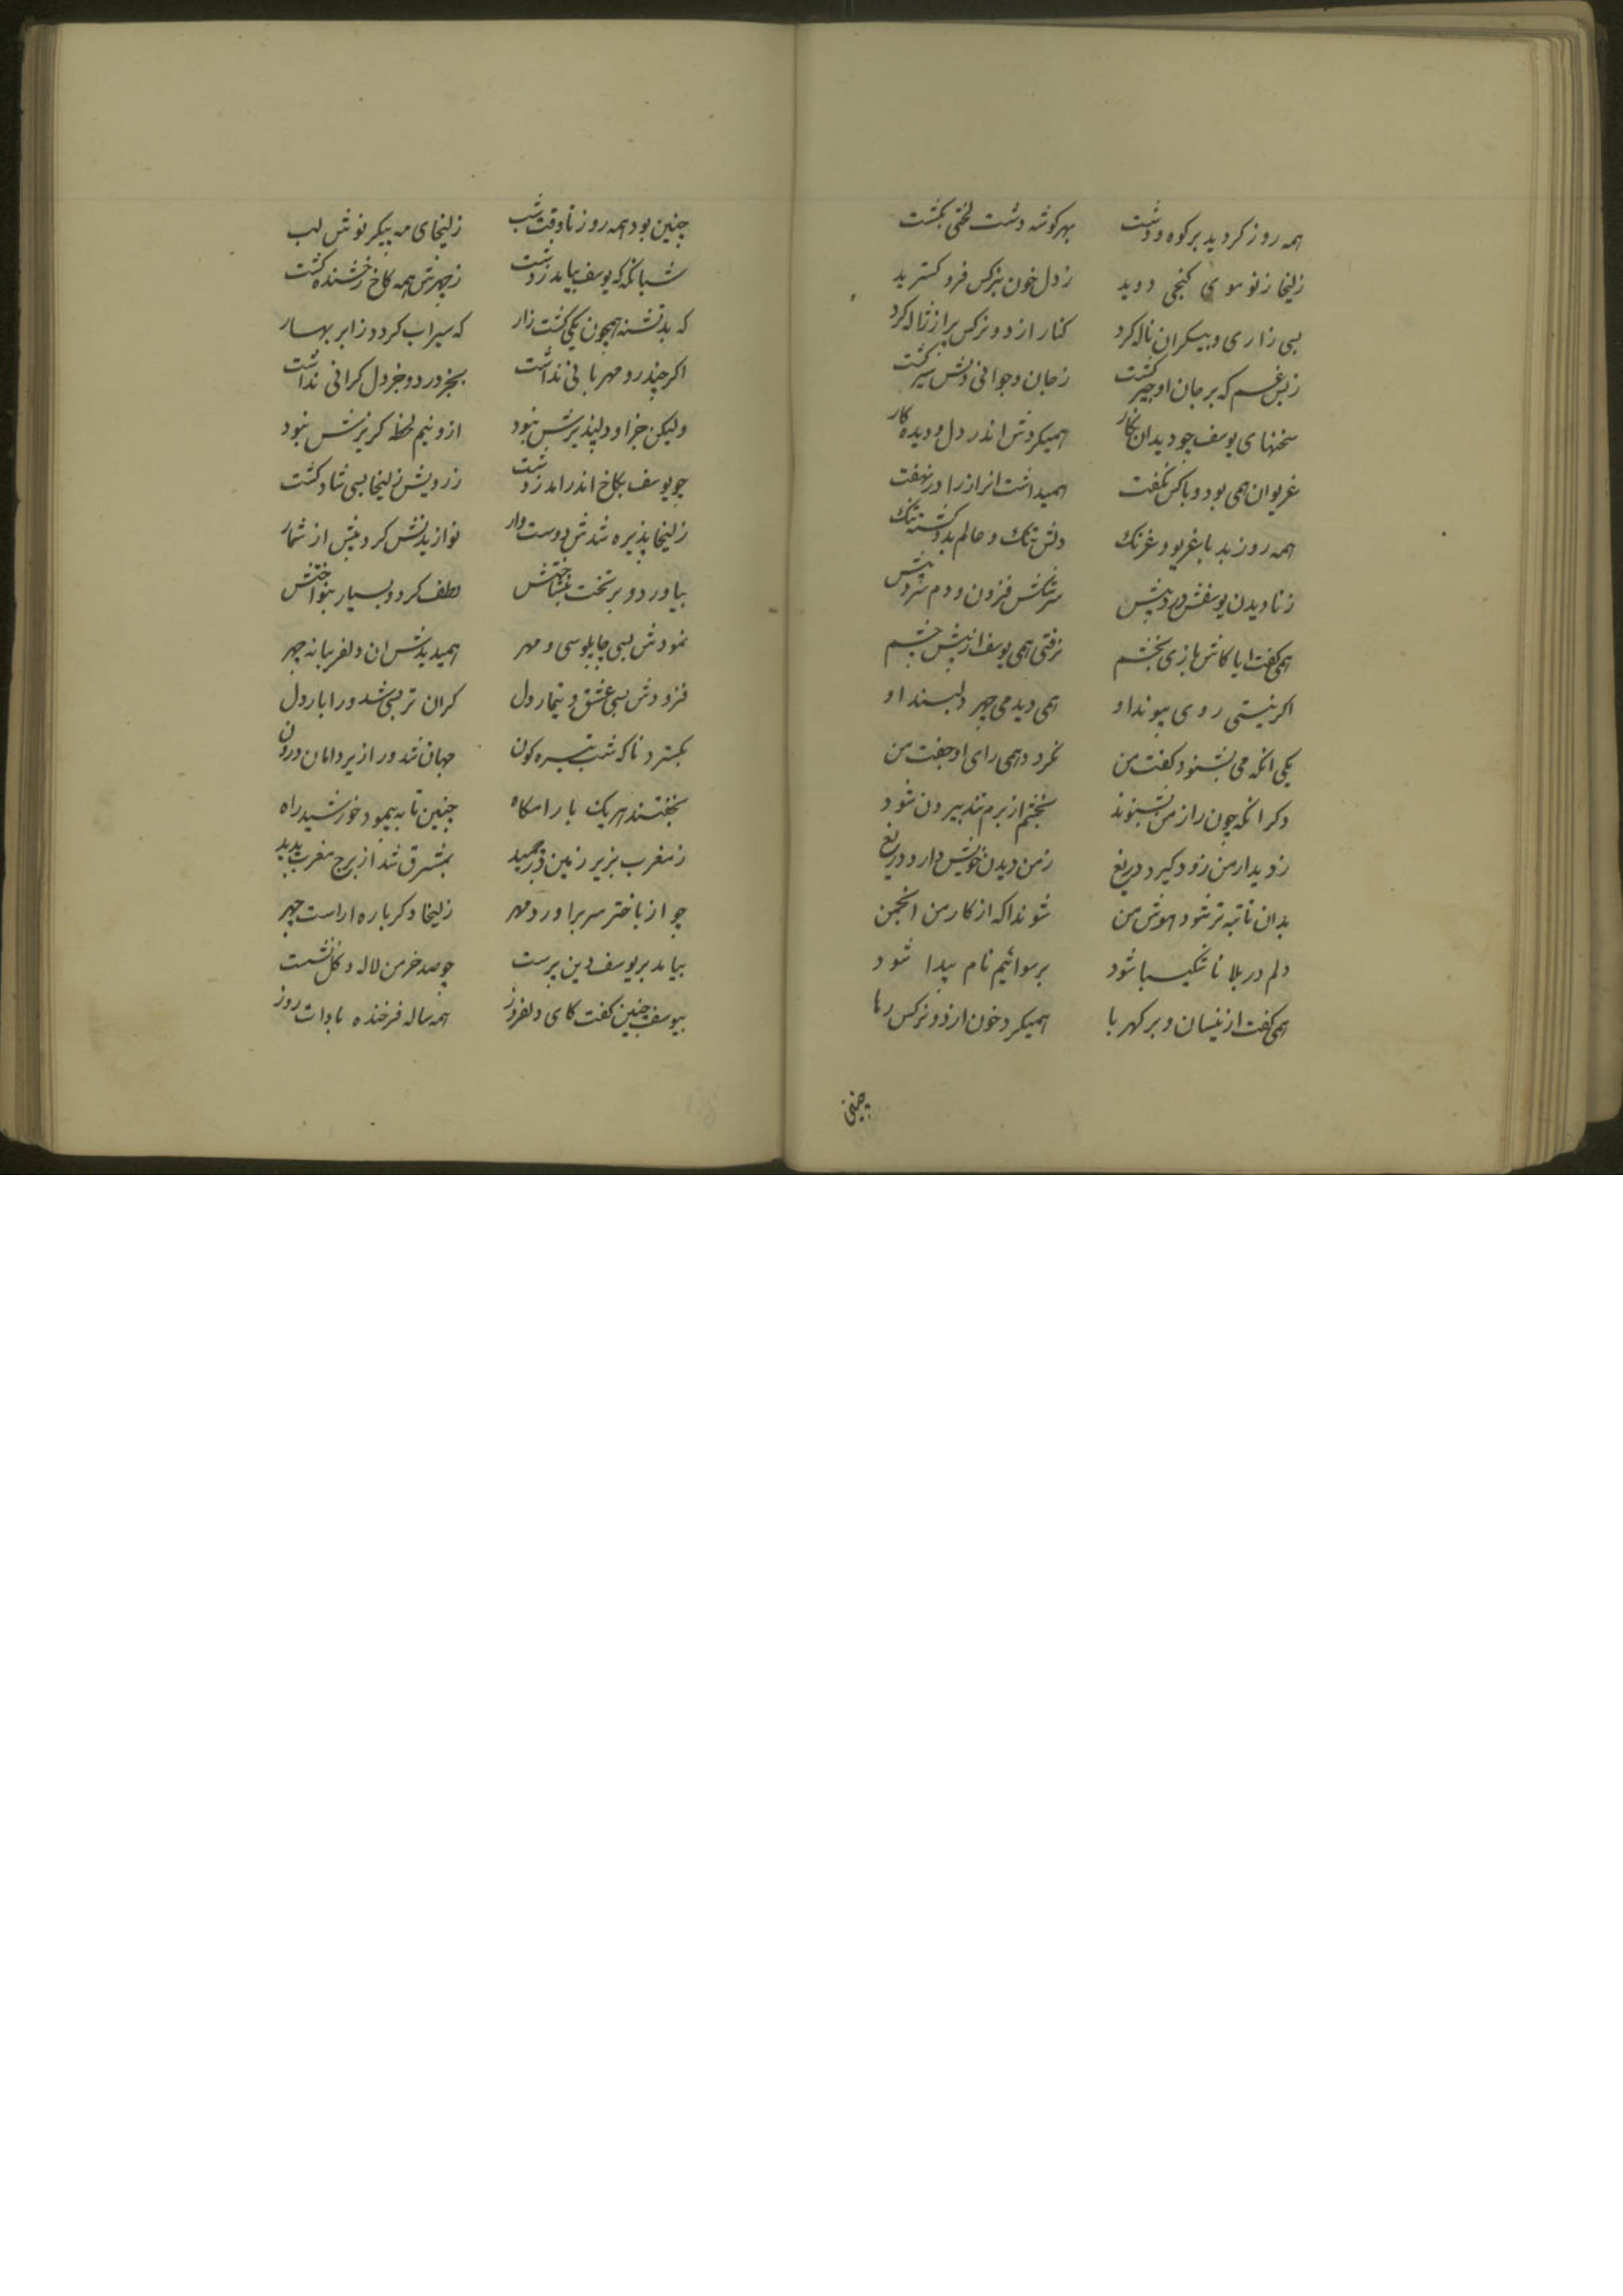 همه روز کردید بر کوه و دشت بهر کوشه دشت لختی بکشت
زلیخا ز نو سوی کنجی دوید ز دل خون بنرکس فرو کسترید
بسی زاری و بیکران ناله کرد کنار از دو نرکس پر از ژاله کرد
ز بس غم که بر جان او چیر کشت ز جان و جوانی دلش سیر کشت
سخنهای یوسف چو دید ان نکار همیکردش اندر دل و دیده کار
غریوان همی بود و با کس نکفت همیداشت انراز را در نهفت
همه روز بد با غریو و غرنک دلش تنک و عالم بدو کشته تنک
ز نادیدن یوسفش درد بیش سرشکش فزون و دم سرد بیش
همی کفت ایا کاش باری بخشم نرفتی همی یوسف از پیش چشم
اکر نیستی روی پیوند او همی دیدمی چهر دلبند او
یکی انکه می نشنود کفت من نکردد همی رای او جفت من
دکر انکه چون راز من بشنود بخشم از برم تند بیرون شود
ز دیدار من زود کیرد دریغ ز من دیدن خویش دارد دریغ
بدان تا تبه تر شود هوش من شوند اکه از کار من انجمن
دلم در بلا ناشکیبا شود برسوائیم نام پیدا شود
همی کفت ازینسان و بر کهربا همیکرد خون از دو نرکس رها
چنین
چنین بود همه روز تا وقت شب زلیخای مه پیکر نوش لب
شبانکه که یوسف بیامد ز دشت ز چهرش همه کاخ رخشنده کشت
که بد تشنه همچون یکی کشت زار که سیراب کردد ز ابر بهار
اکر چند زو مهربانی نداشت بجز درد و جز دل کرانی نداشت
ولیکن جز او دلپذیرش نبود ازو نیم لحظه کریزش نبود
چو یوسف بکاخ اندر امد ز دشت ز رویش زلیخا بسی شاد کشت
زلیخا پذیره شدش دوست وار نوازیدنش کرد بیش از شمار
بیاورد و بر تخت بنشاختش لطف کرد و بسیار بنواختش
نمودش بسی چاپلوسی و مهر همیدیدش ان دلفریبانه چهر
فزودش بسی عشق و تیمار دل کران تر بسی شد ورا بار دل
بکسترد ناکه شب تیره کون جهان شد ور از یر دامان درون
بخفتند هر یک بارامکاه چنین تا به پیمود خورشید راه
ز مغرب بزیر زمین در چمید بمشرق شد از برج مغرب پدید
چو از باختر سر براورد مهر زلیخا دکر باره اراست چهر
بیامد بر یوسف دین پرست چو صد خرمن لاله و کل نشست
بیوسف چنین کفت کای دلفروز همه ساله فرخنده بادات روز